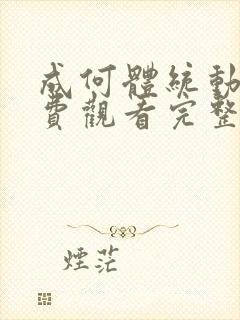 成何體統動
費觀看完整
煙茫